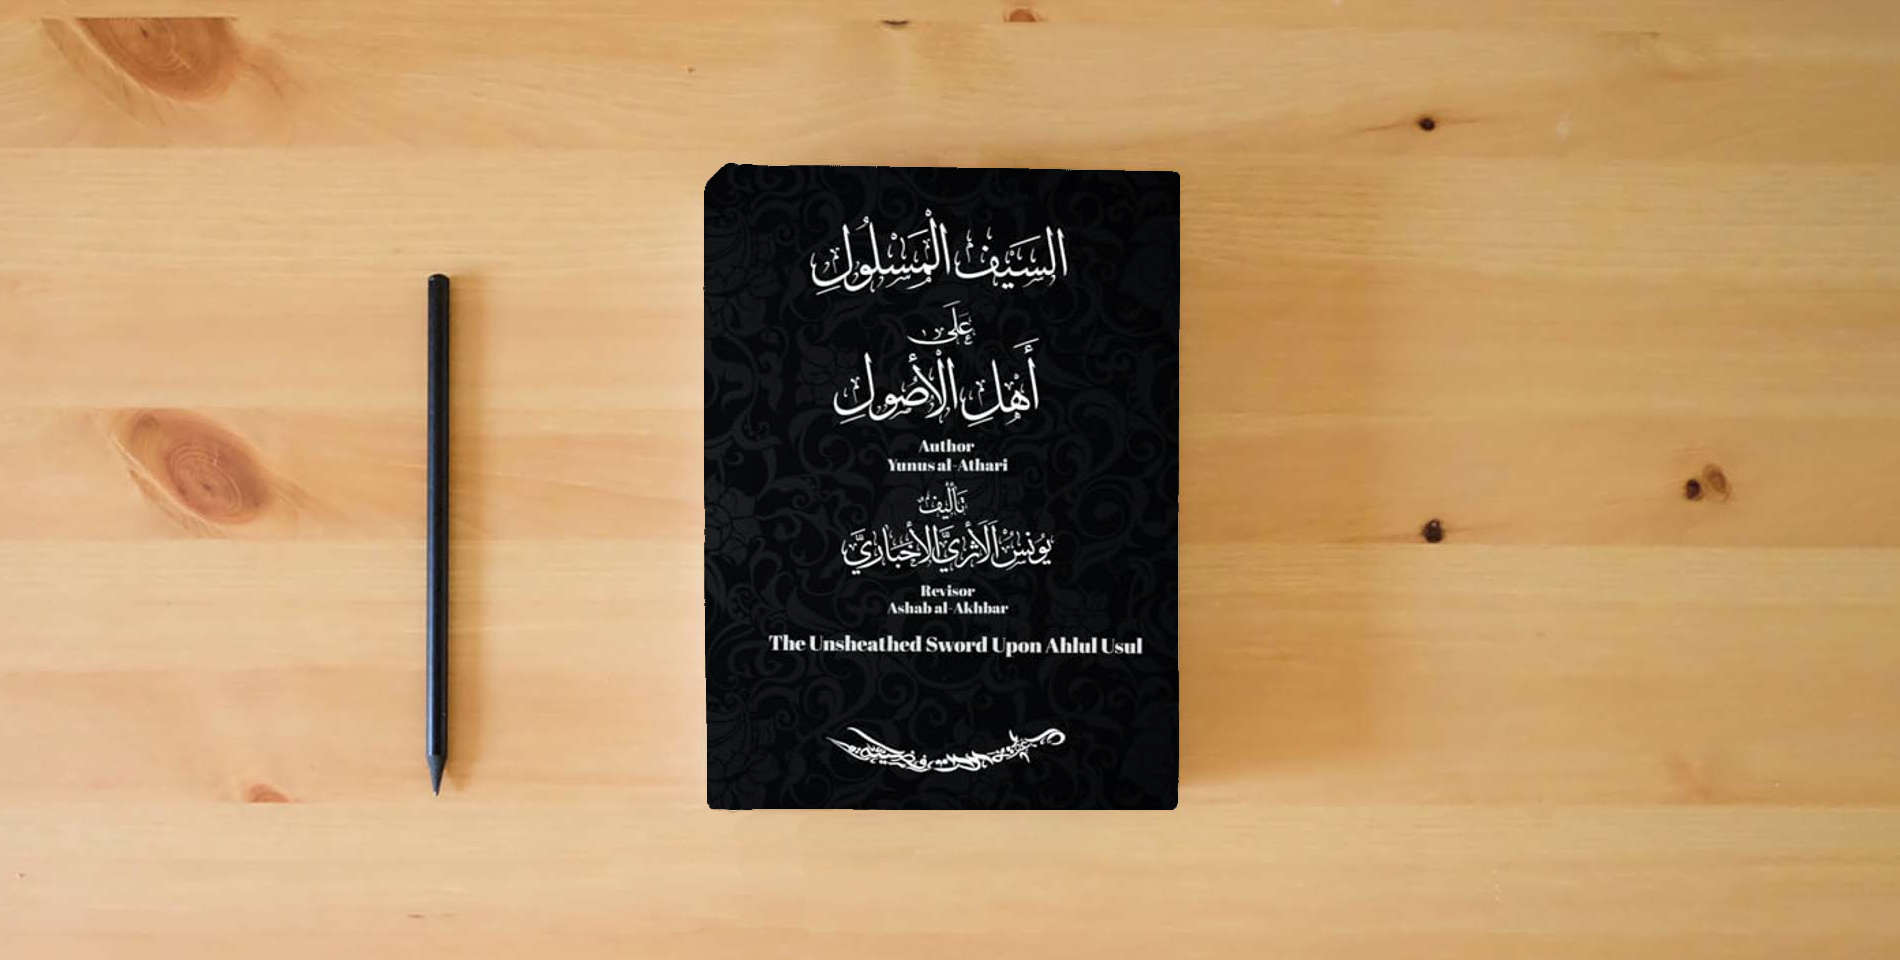 السَّيْفُ الْمَسْلُولِ
عَلَى
أَهْلِ الْأُصُولِ
Author
Yunus al-Athari
تَأْلِيفُ
يُونُسْ اَلْأَثَرِيَّ الأَخْبَارِيَّ
Revisor
Ashab al-Akhbar
The Unsheathed Sword Upon Ahlul Usul